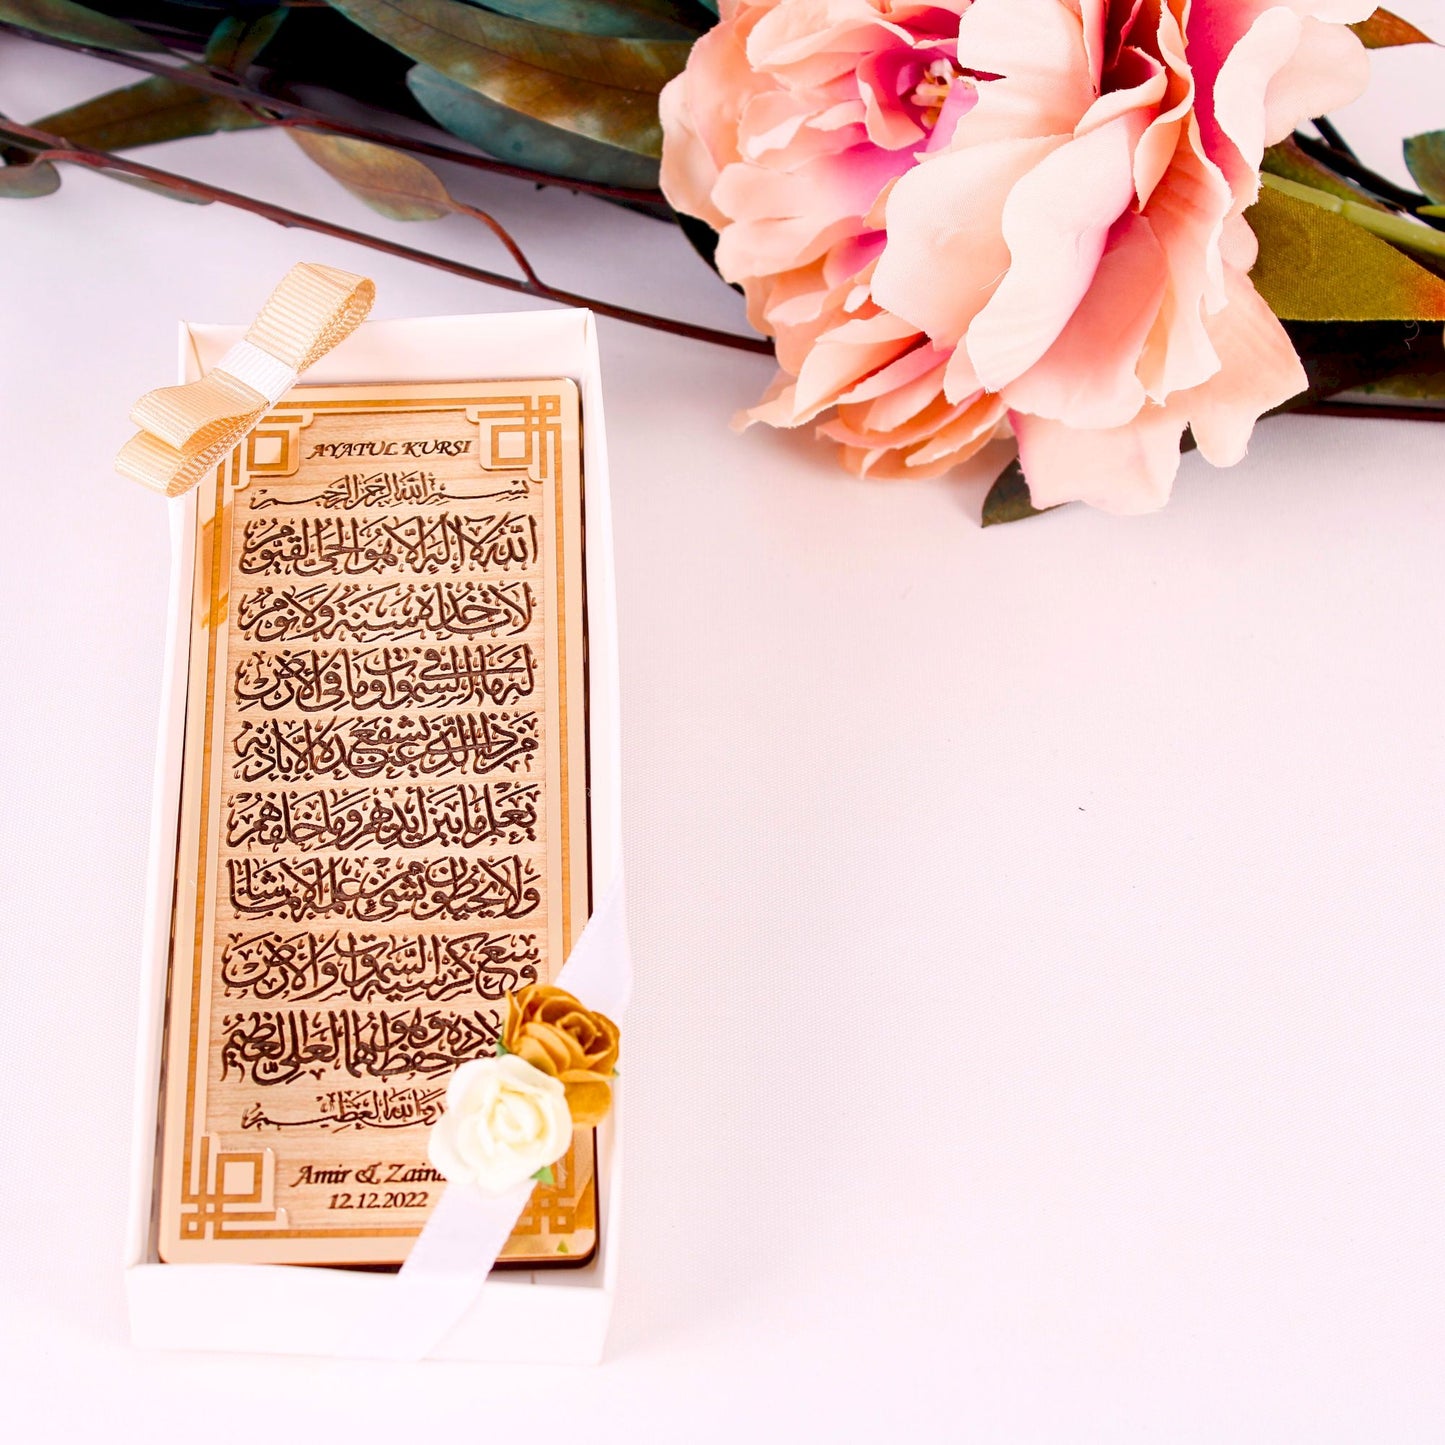 AYATUL KURSI
بسم الله الرحمن الرحيم
الله لا إله إلا هو الحي القيوم
لا تأخذه سنة ولا نوم
له ما في السموات وما في الأرض
من ذا الذي يشفع عنده إلا بإذنه
يعلم ما بين أيديهم وما خلفهم
ولا يحيطون بشيء من علمه إلا بما شاء
وسع كرسيه السموات والأرض
حفظهما وهو العلي العظيم
الله العظيم
Amir &
12.12.2022